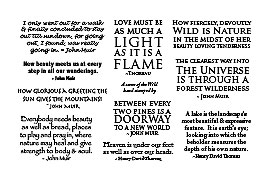 I only went out for a walk
& finally concluded to stay
out till sundown, for going
out, I found, was really
going in. ~ John Muir
How beauty meets us at every
step in all our wanderings.
~ John Muir
HOW GLORIOUS A GREETING THE
SUN GIVES THE MOUNTAINS!
~ JOHN MUIR
Everybody needs beauty
as well as bread, places
to play and pray in, where
nature may heal and give
strength to body & soul.
~ John Muir
LOVE MUST BE
AS MUCH A
LIGHT
AS IT IS A
FLAME
~THOREAU
A series of the Wild
hand stamped by
BETWEEN EVERY
TWO PINES IS A
DOORWAY
TO A NEW WORLD
~ JOHN MUIR
Heaven is under our feet
as well as over our heads.
~Henry David Thoreau
HOW FIERCELY, DEVOUTLY
WILD IS NATURE
IN THE MIDST OF HER
BEAUTY LOVING TENDERNESS
THE CLEAREST WAY INTO
THE UNIVERSE
IS THROUGH A
FOREST WILDERNESS
~ JOHN MUIR
A lake is the landscape's
most beautiful & expressive
feature. It is earth's eye;
looking into which the
beholder measures the
depth of his own nature.
~Henry David Thoreau